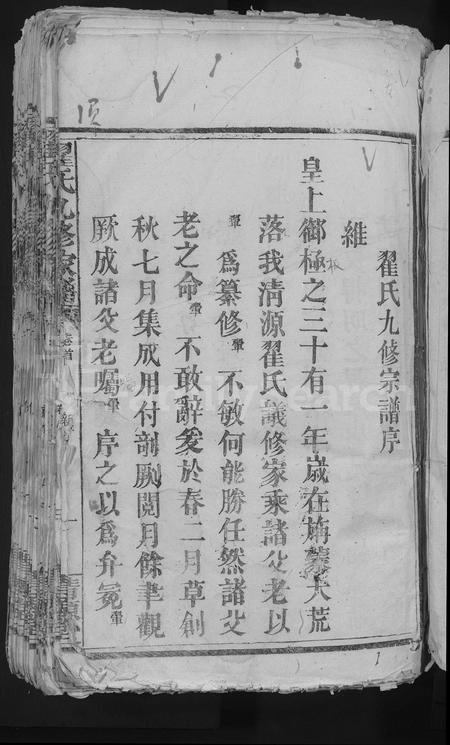 翟氏九修宗譜序
維
皇上御極之三十有一年歲在旃蒙大荒
落我清源翟氏議修家乘諸父老以
爲纂修 不敏何能勝任然諸父
老之命 不敢辭爰於春二月草創
秋七月集成用付剞劂閱月餘聿觀
厥成諸父老囑 序之以爲弁冕
翟氏九修宗譜 卷首
FamilySearch